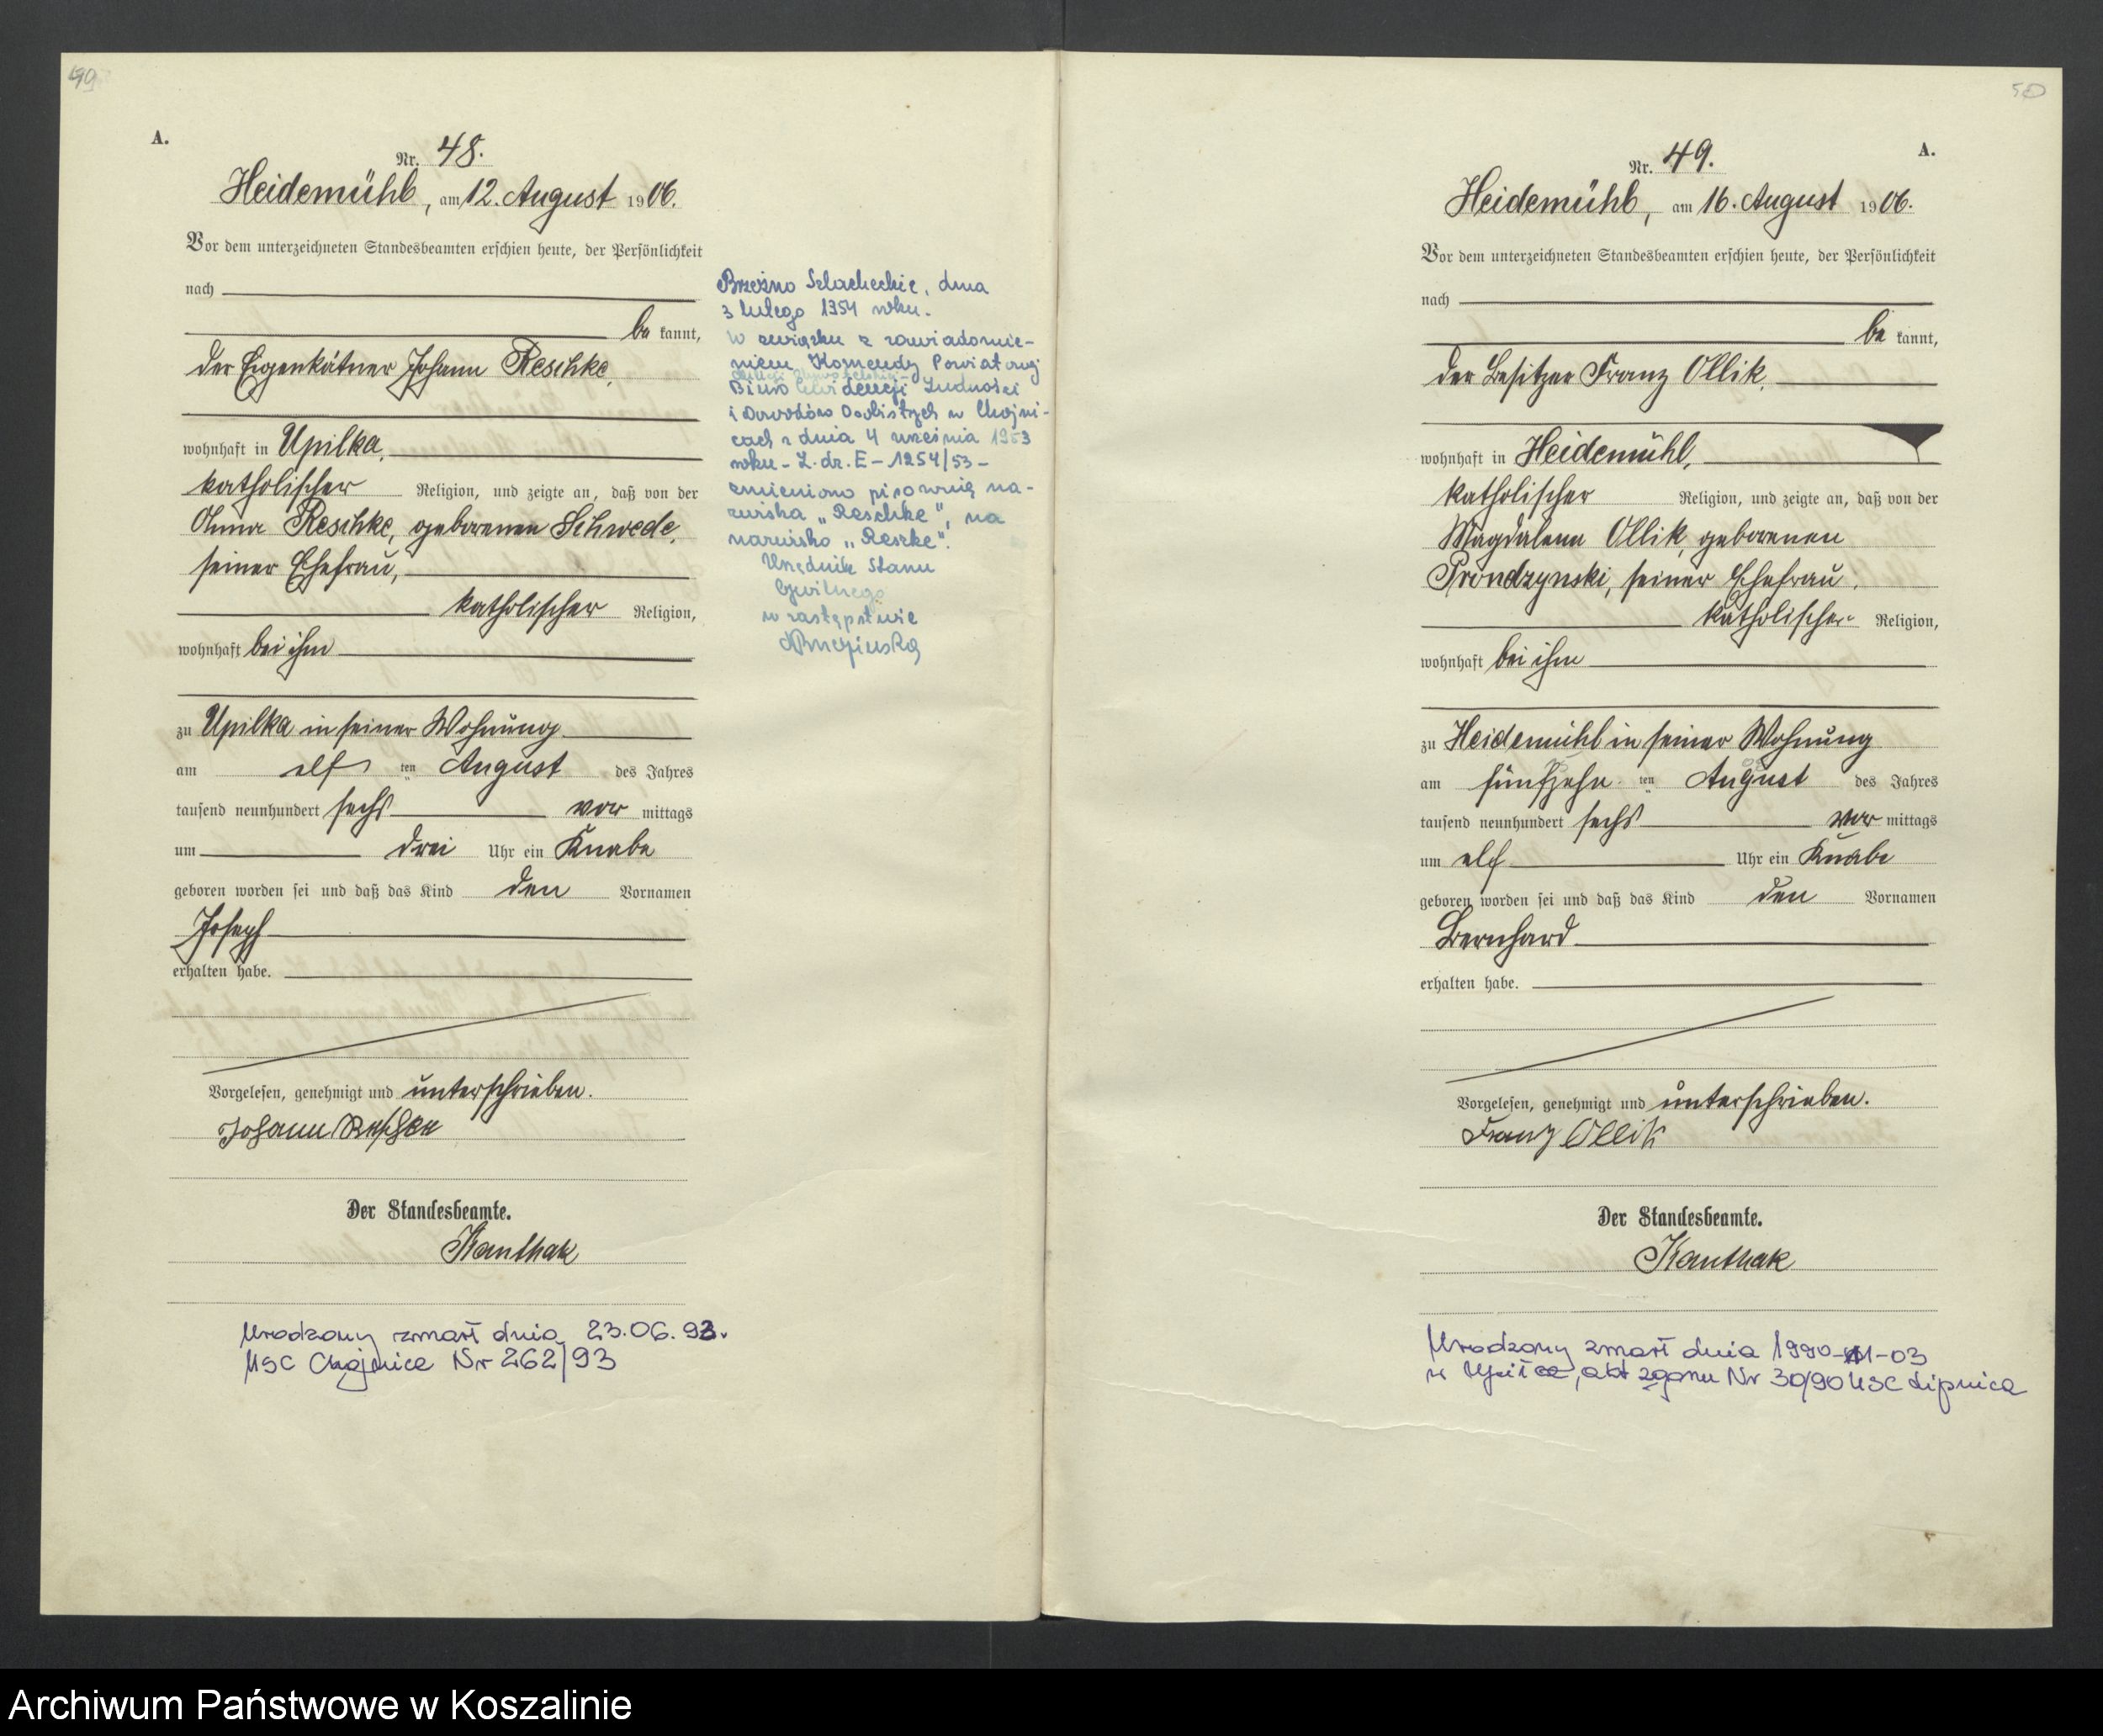 49
A.
Nr. 48.
Heidemühl, am 12. August 1906.
Vor dem unterzeichneten Standesbeamten erschien heute, der Persönlichkeit
nach
be kannt,
der Eigenkätner Johann Reschke,
wohnhaft in Upilka,
katholischer Religion, und zeigte an, daß von der
Anna Reschke, geborenen Schwede,
seiner Ehefrau,
katholischer Religion,
wohnhaft bei ihm
zu Upilka in seiner Wohnung
am elf ten August des Jahres
tausend neunhundert sechs vor mittags
um drei Uhr ein Knabe
geboren worden sei und daß das Kind den Vornamen
Joseph
erhalten habe.
Vorgelesen, genehmigt und unterschrieben.
Johann Reschke
Der Standesbeamte.
Kanthak
Urodzony zmarł dnia 23.06.93.
USC Chojnice Nr 262/93
Brzeźno Szlacheckie, dnia
3 lutego 1954 roku.
W związku z zawiadomie-
niem Komendy Powiatowej
Milicji Obywatelskiej
Biuro Ewidencji Ludności
i Dowodów Osobistych w Chojni-
cach z dnia 4 września 1953
roku - L. dz. E - 1254/53 -
zmieniono pisownię na-
zwiska „Reschke", na
nazwisko „Reszke".
Urzędnik Stanu
Cywilnego
w zastępstwie
50
A.
Nr. 49.
Heidemühl, am 16. August 1906.
Vor dem unterzeichneten Standesbeamten erschien heute, der Persönlichkeit
nach
be kannt,
der Besitzer Franz Ollik,
wohnhaft in Heidemühl,
katholischer Religion, und zeigte an, daß von der
Magdalena Ollik, geborenen
Prondzynski, seiner Ehefrau,
katholischer Religion,
wohnhaft bei ihm
zu Heidemühl in seiner Wohnung
am fünfzehn ten August des Jahres
tausend neunhundert sechs vor mittags
um elf Uhr ein Knabe
geboren worden sei und daß das Kind den Vornamen
Bernhard
erhalten habe.
Vorgelesen, genehmigt und unterschrieben.
Franz Ollik
Der Standesbeamte.
Kanthak
Urodzony zmarł dnia 1990-11-03
w Upiłce, akt zgonu Nr 30/90 USC Lipnica
Archiwum Państwowe w Koszalinie